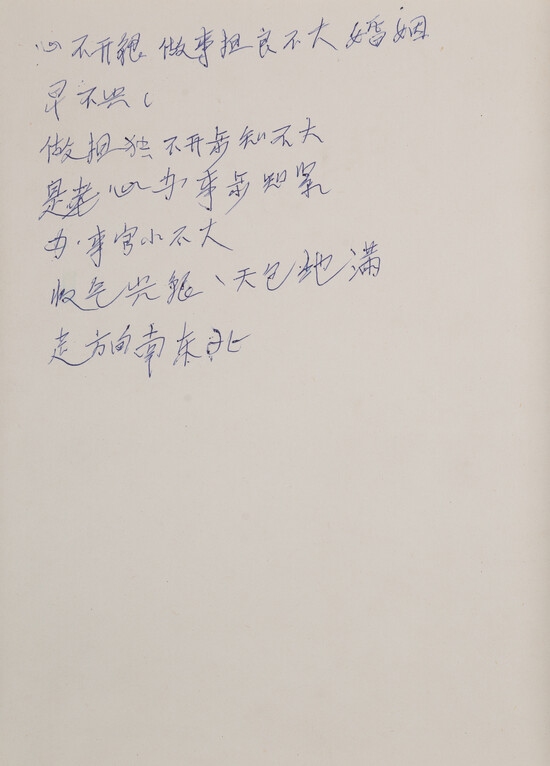 心不开 做事担良不大婚姻
早不兴
做担独不开 知不大
是老心办事 知紧
办事官小不大
收气 天包地满
走方向南东北